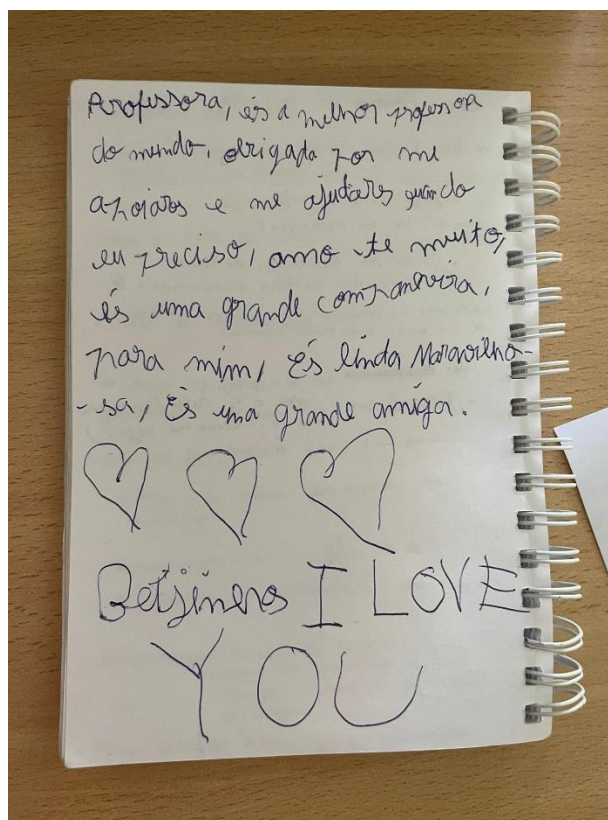 Professora, és a melhor professora
do mundo, obrigada por me
apoiares e me ajudares quando
eu preciso, amo-te muito,
és uma grande companheira,
para mim, És linda Maravilho-
-sa, És uma grande amiga.
Betjinhos I LOVE
YOU